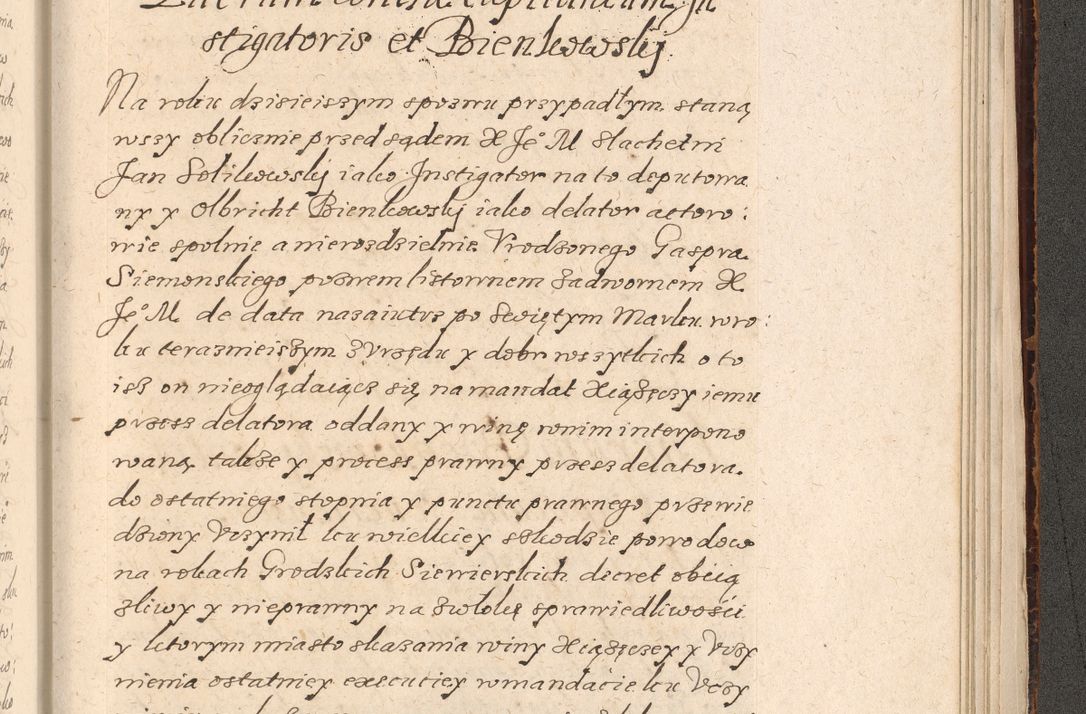 stigatoris et Bienkowskij
Na roku dzisieiszym spozwu przypadłym staną
wszy oblicznie przed sądem X Je° M Slachetni
Jan Solikowskij iako Instigator na to deputowa
ny y Olbricht Bienkowskij iako delator actoro:
wie spolnie a nierozdzielnie Vrodzonego Gaspra
Siemonskiego pozwem listownem zadwornem X
Je° M de data nazaiutrz po Swiętym Marku wro:
ku terazmeiszym z Vrzędu y dobr wszytkich o to
isz on nieoglądaiącz się na mandat Xiązęczy iemu
przesz delatora oddany y winę wnim interpono
waną takze y process prawny przesz delatora
do ostatniego stopnia y punctu prawnego przewie
dziony Vczynił ku wielkiey szkodzie powodow
na rokach Grodzkich Siewierskich decret obcią
zliwy y nieprawny na zwłokę sprawiedliwości
y ktorym miasto skazania winy Xiązęczey y Vczy
nienia ostatniey executiey wmandacie ku Vczy